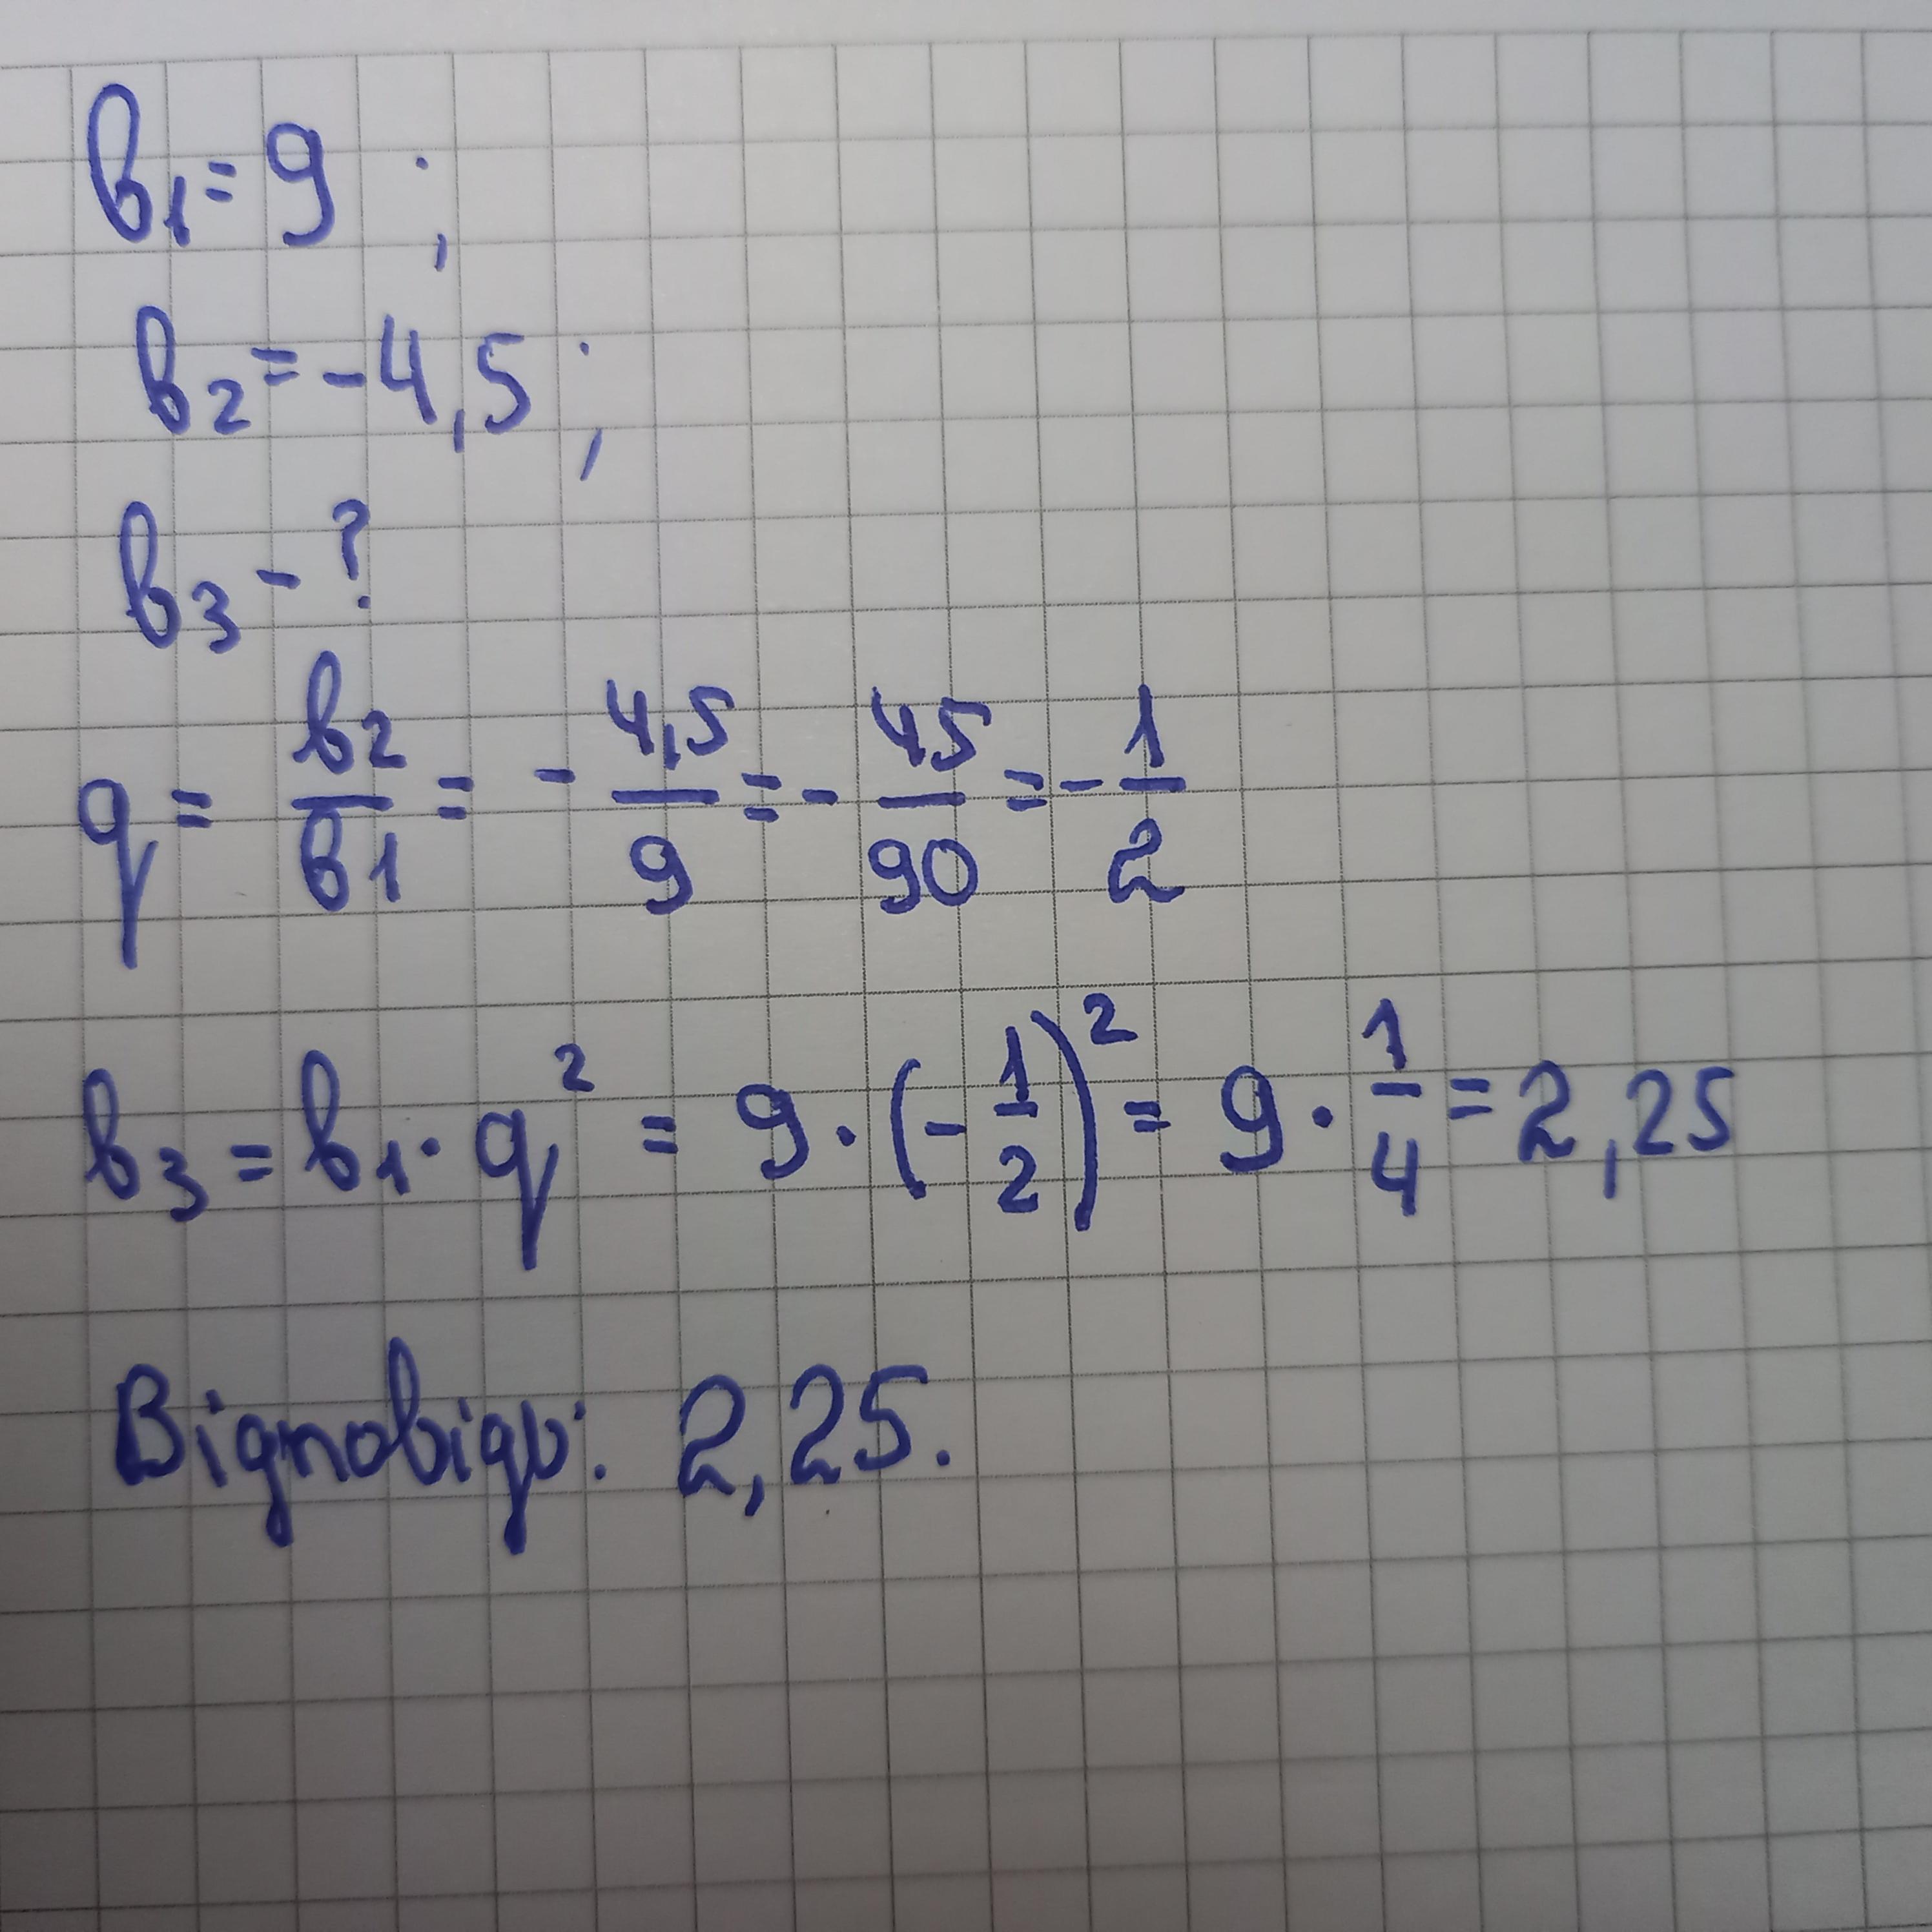 b₁ = 9 ;
b₂ = -4,5 ;
b₃ - ?
q = b₂/b₁ = - 4,5/9 = - 45/90 = - 1/2
b₃ = b₁ · q² = 9 · (- 1/2)² = 9 · 1/4 = 2,25
Відповідь: 2,25.